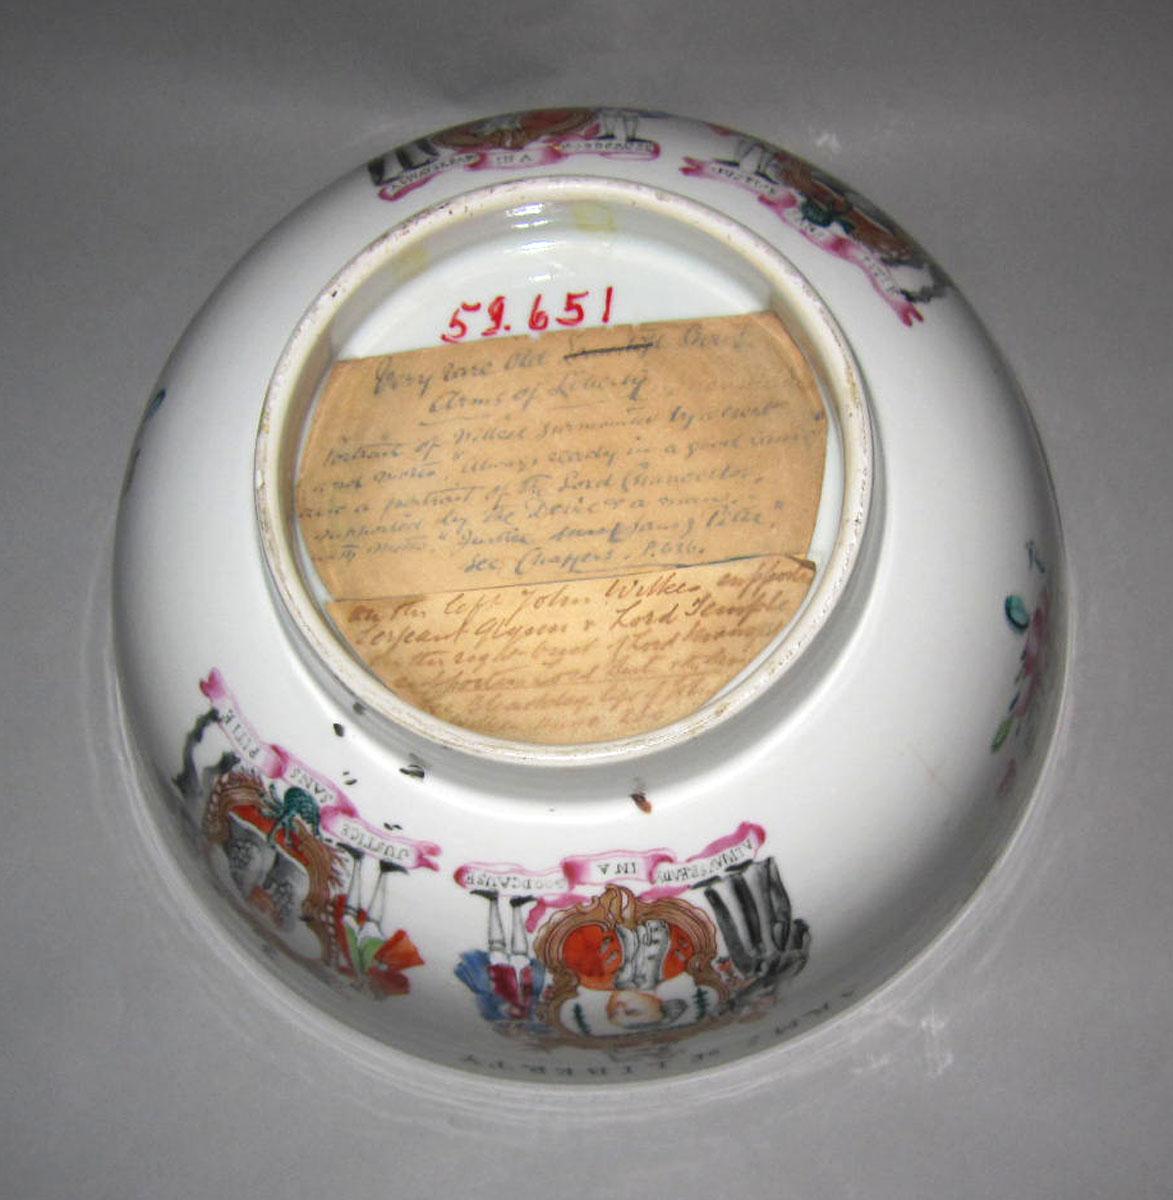 ALWAYS READY IN A GOOD CAUSE
JUSTICE SANS PITIE
59.651
Very rare old
Arms of Liberty
Portrait of Wilkes surmounted by
motto "Always ready in a good cause"
and a portrait of the Lord Chancellor,
supported by the Devil & a man,
with motto "Justice sans pitié,"
See Chaffers. P.636.
on the left John Wilkes supported
Sergeant Glynn & Lord Temple
on the right bust of Lord Mansfield
supporters Lord Bute & the
JUSTICE SANS PITIE
ALWAYS READY IN A GOOD CAUSE
ARMS OF LIBERTY